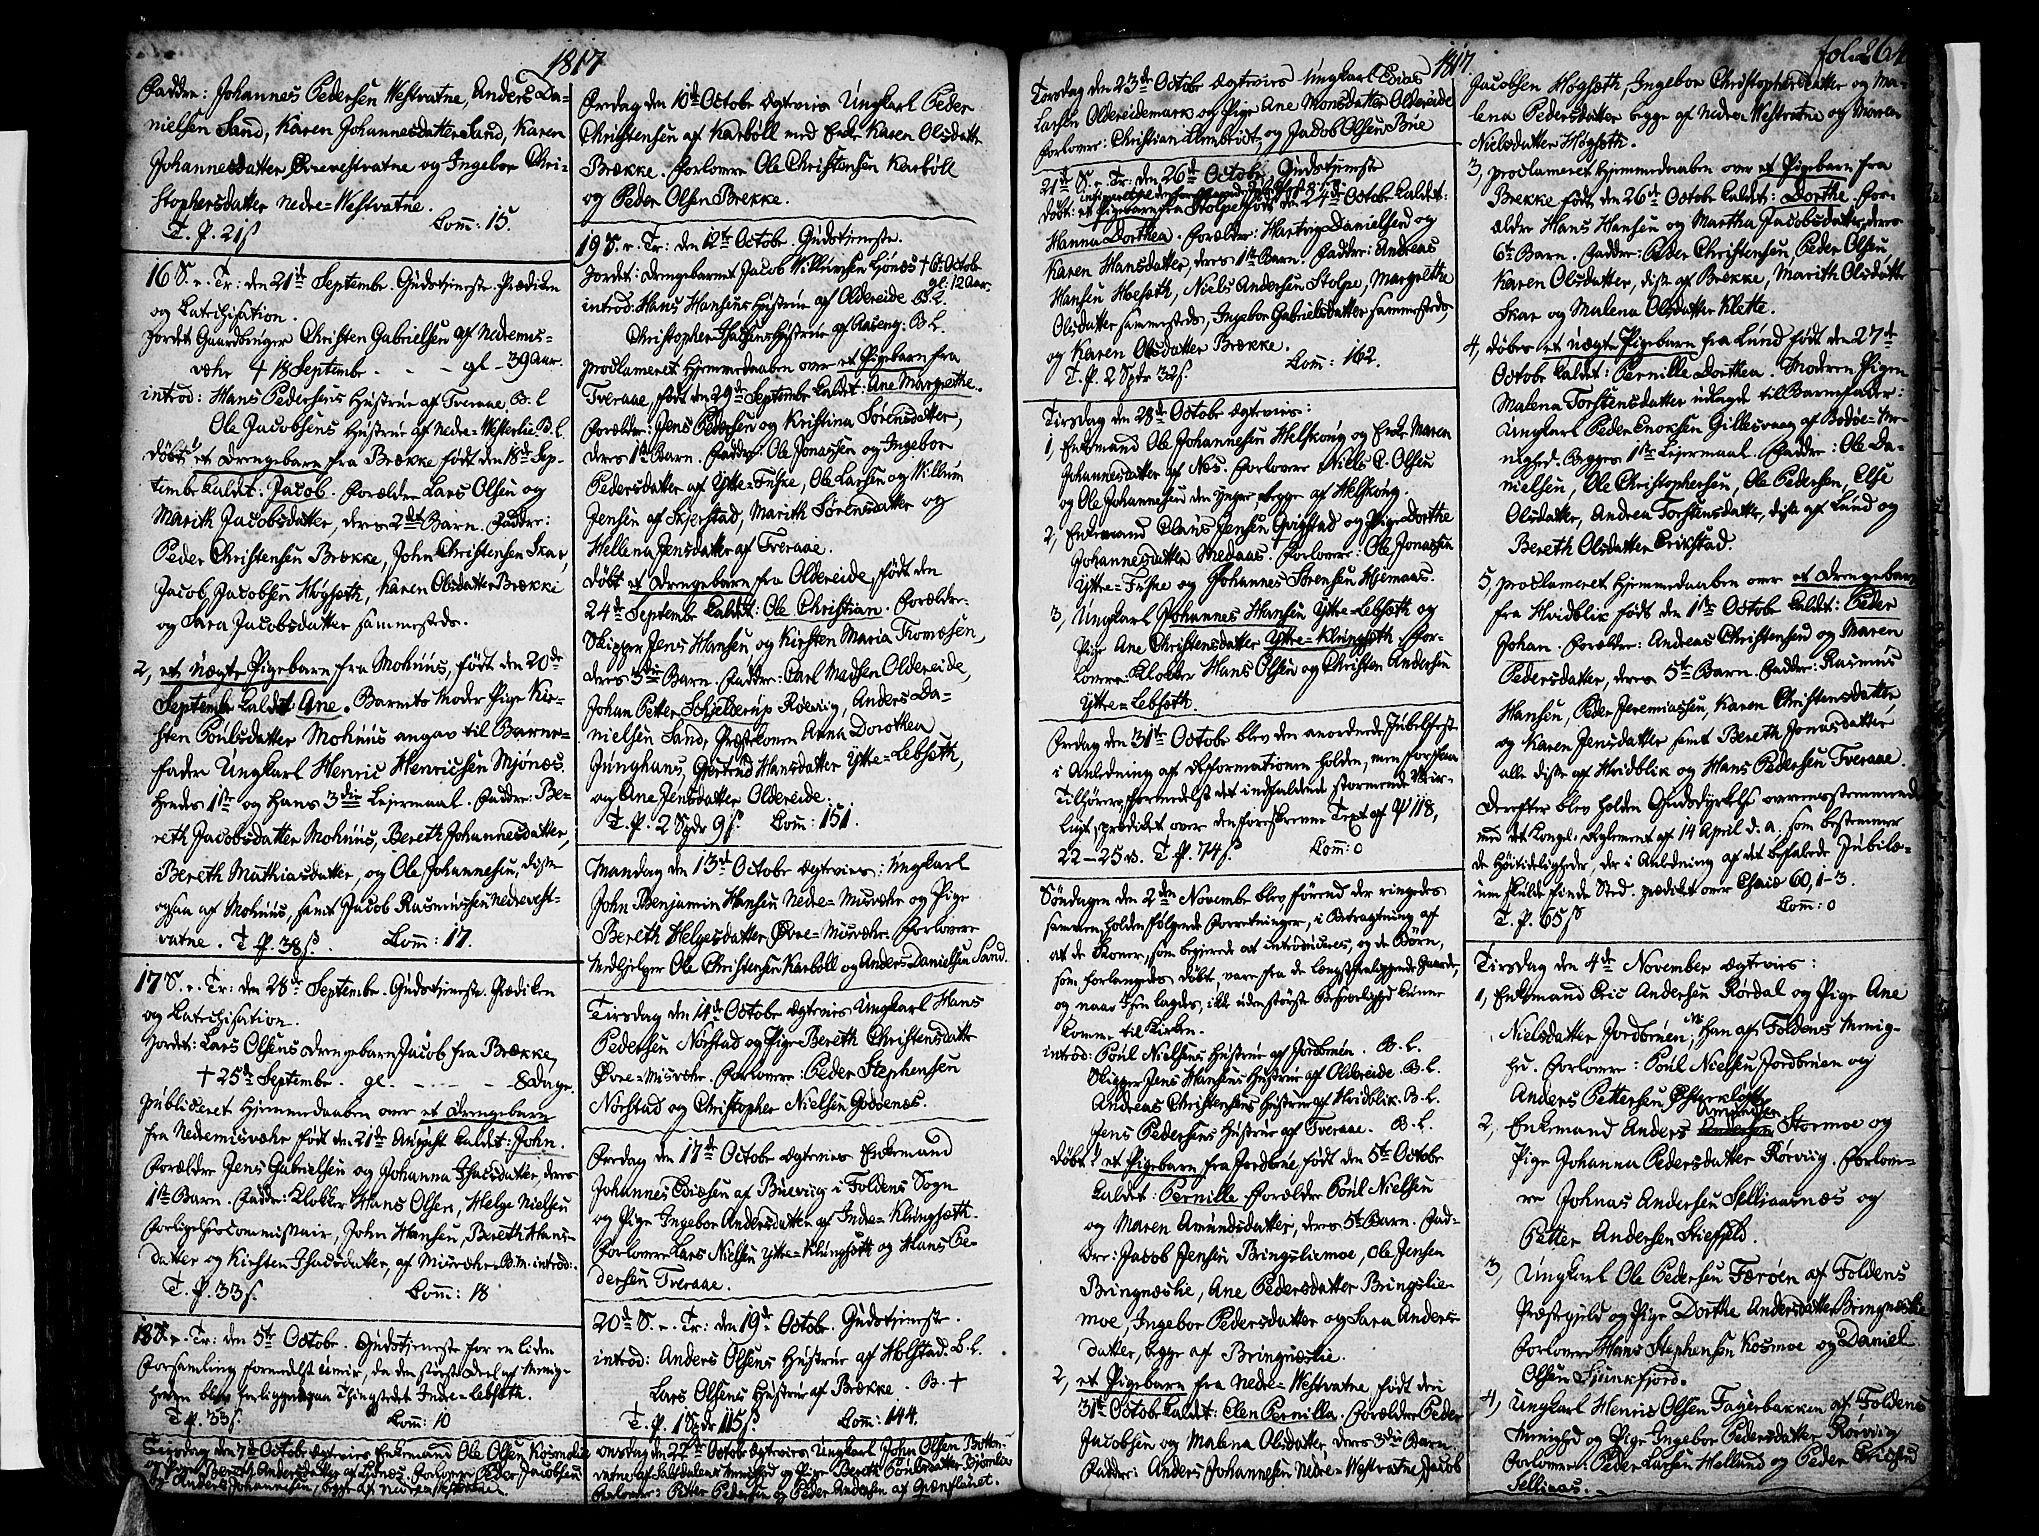 1817
Faddre: Johannes Pedersen Westvatne, Anders Da-
nielsen Sand, Karen Johannesdatter Sand, Karen
Johannesdatter Øvrevestvatne og Ingebor Chri-
stophersdatter Nedre-Westvatne.
T. P. 21 s. Com: 15.
16 S. e. Tr: den 21de Septembr. Gudstjeneste. Prædiken
og Catechisation.
Jordet Gaardbruger Christen Gabrielsen af Nedremis-
væhr † 18 Septembr - - - gl - 39 Aar.
introd: Hans Pedersens Hustrue af Tveraae. B. L
Ole Jacobsens Hustrue af Nedre-Westerlie. B. L.
Døbt: 1, et Drengebarn fra Brække født den 18de Sep-
tembr kaldet: Jacob. Forældre Lars Olsen og
Marith Jacobsdatter, deres 2det Barn. Faddre:
Peder Christensen Brække, John Christensen Skar,
Jacob Jacobsen Høgseth, Karen Olsdatter Brække
og Sara Jacobsdatter sammesteds.
2, et uægte Pigebarn fra Mohuus, født den 20de
Septembr kaldet Ane. Barnets Moder Pige Kir-
sten Poulsdatter Mohuus angav til Barne-
fader Ungkarl Henric Henricsen Mjønæs.
Hendes 1ste og Hans 3die Lejermaal. Faddre: Be-
reth Jacobsdatter Mohuus, Bereth Johannesdatter,
Bereth Mathiasdatter, og Ole Johannesen, disse
ogsaa af Mohuus, samt Jacob Rasmussen Nedrevest-
vatne. T. P. 38 s. Com: 17.
17 S. e. Tr: den 28de Septembr. Gudstjeneste. Prædiken
og Catechisation.
Jordet: Lars Olsens Drengebarn Jacob fra Brække,
† 25de Septembr. gl. - - - - 8 Dage.
publiceret Hjemmedaaben over et Drengebarn
fra Nedremisvæhr født den 21de August kaldet: John.
Forældre Jens Gabrielsen og Johanna Isacsdatter, deres
1ste Barn. Faddre: Klokker Hans Olsen, Helge Nielsen
Forligelsescommissair, John Hansen, Bereth Hans-
datter og Kirsten Isacsdatter, af Misvæhr. B. M. introd:
T. P. 33 s. Com: 18
18 S. e. Tr: den 5te Octobr. Gudstjeneste for en liden
Forsamling formedelst Uveir, da den største Deel af Menig-
heden blev beliggende paa Thingstedet Indre-Lebseth.
T. P. 33 s. Com: 10
Tirsdag den 7de Octobr ægtevies Enkemand Ole Olsen Kosmolie
og Pige Bereth Andersdatter af Ljønes. Forlovere Peder Jacobsen
og Anders Johannesen, begge af Nedrevestvatne.
Fredag den 10de Octobr ægtevies Ungkarl Peder
Christensen af Karbøll med Enke Karen Olsdatter
Brække. Forlovere Ole Christensen Karbøll
og Peder Olsen Brekke.
19 S. e. Tr: den 12te Octobr. Gudstjeneste.
Jordet: Drengebarnet Jacob Willumsen Ljønes † 6te Octobr
gl: 12 Aar.
introd: Hans Hansens Hustrue af Oldereide B. L.
Christopher Isacsens Hustrue af Aaseng: B. L.
proclameret Hjemmedaaben over et Pigebarn fra
Tveraae, født den 29de Septembr kaldet: Ane Margrethe.
Forældre: Jens Pedersen og Kristina Sørensdatter,
deres 1ste Barn. Faddre: Ole Jonassen og Ingebor
Pedersdatter af Ytre-Fuske, Ole Larsen og Willum
Jensen af Skjerstad, Marith Sørensdatter og
Hellena Jensdatter af Tveraae.
Døbt et Drengebarn fra Oldereide, født den
24de Septembr kaldet: Ole Christian. Forældre:
Skipper Jens Hansen og Kirsten Maria Thomsen,
deres 3die Barn. Faddre: Carl Madsen Oldereide,
Johan Petter Schjelderup Røevig, Anders Da-
nielsen Sand, Præstekonen Anna Dorothea
Junghans, Gjertrud Hansdatter Ytre-Lebseth,
og Ane Jensdatter Oldereide.
T. P. 2 Spdr 9 s. Com: 151.
Mandag den 13de Octobr ægtevies: Ungkarl
John Benjamin Hansen Nedre-Misvæhr og Pige
Bereth Helgesdatter Øvre-Misvæhr. Forlovere
Medhjelper Ole Christensen Karbøll og Anders Danielsen Sand.
Tirsdag den 14de Octobr ægtevies Ungkarl Hans
Pedersen Nørstad og Pige Bereth Christensdatter
Øvre-Misvæhr. Forlovere: Peder Stephensen
Nørstad og Christopher Nielsen Godøenæs.
Fredag den 17de Octobr ægtevies Enkemand
Johannes Ediæsen af Buevig i Foldens Sogn
og Pige Ingebor Andersdatter af Indre-Klungseth.
Forlovere Lars Nielsen Ytre-Klungseth og Hans Pe-
dersen Tveraae.
20de S. e. Tr: den 19de Octobr. Gudstjeneste.
introd: Anders Olsens Hustrue af Holstad. B. L.
Lars Olsens Hustrue af Brække. B. †
T. P. 1 Spdr 115 s Com: 144.
Onsdag den 22de Octobr ægtevies Ungkarl John Olsen Botten-
vatne af Saltdalens Menighed og Pige Bereth Poulsdatter Bjørnlie
Forlovere: Petter Pedersen og Peder Andersen af Grønflauet.
1817 fol. 264
Torsdag den 23de Octobr ægtevies Ungkarl Edias
Larsen Oldereidemark og Pige Ane Monsdatter Oldereide
Forlover: Christian Armstedt og Jacob Olsen Bue
21de S. e. Tr: den 26de Octobr. Gudstjeneste
Døbt: et Pigebarn fra Stolpe født den 24de Octobr kaldet:
Hanna Dorthea. Forældre: Hartvig Danielsen og
Karen Hansdatter, deres 1ste Barn. Faddre: Andreas
Hansen Hoeseth, Niels Andersen Stolpe, Margrethe
Olsdatter sammesteds, Ingebor Gabrielsdatter sammesteds,
og Karen Olsdatter Brække.
T. P. 2 Spdr 32 s. Com: 162.
Tirsdag den 28de Octobr ægtevies:
1, Enkemand Ole Johannesen Wefskong og Enke Maren
Johannesdatter af Næs. Forlovere Niels C. Olsen
og Ole Johannesen den Yngre, begge af Wefskong.
2, Enkemand Claus Jensen Qvigstad og Pige Dorthe
Johannesdatter Medaas. Forlovere: Ole Jonassen
Ytre-Fuske og Johannes Sørensen Hjemaas.
3, Ungkarl Johannes Hansen Ytre-Lebseth og
Pige Ane Christensdatter Ytre-Klungseth. For-
lovere: Klokker Hans Olsen og Christen Andersen
Ytre-Lebseth.
Fredag den 31te Octobr blev den anordnede Jubelfest
i Anledning af Reformationen holden, men for faa
Tilhørere, formedelst det indfaldende stormende Veir-
Ligt, prædiket over den foreskrevne Text af Ps 118,
22-25 v. T. P. 74 s. Com: 0
Søndagen den 2den November blev førend der ringedes
sammen, holden følgende Forretninger, i Betragtning af
at de Koner, som begjerede at introduceres, og de Børn,
som forlangedes døbt, vare fra de længstfraliggende Gaarde,
og naar Igen lagdes, ikke uden største Besværlighed kunne
komme til Kirken.
introd: Poul Nielsens Hustrue af Jordbroen. B. L.
Skipper Jens Hansens Hustrue af Oldereide B. L.
Andreas Christensens Hustrue af Hvidblik. B. L.
Jens Pedersens Hustrue af Tveraae. B. L.
Døbt: 1, et Pigebarn fra Jordbroe, født den 5te Octobr
kaldet: Pernille. Forældre Poul Nielsen
og Maren Amundsdatter, deres 5te Barn. Fad-
dre: Jacob Jensen Bringsliemoe, Ole Jensen
Bringneslie, Ane Pedersdatter Bringslie-
moe, Ingebor Pedersdatter og Sara Anders-
datter, begge af Bringneslie.
2, et Pigebarn fra Nedre-Westvatne, født den
31te Octobr kaldet: Elen Pernilla. Forældre Peder
Jacobsen og Malena Olsdatter, deres 3die Barn.
Faddre: Anders Johannesen Nedre-Westvatne, Jacob
1817
Jacobsen Høgseth, Ingebor Christophersdatter og Ma-
lena Pedersdatter begge af Nedre Westvatne og Maren
Nielsdatter Høgseth.
3, proclameret Hjemmedaaben over et Pigebarn fra
Brække født den 26de Octobr kaldet: Dorthe. For-
ældre Hans Hansen og Martha Jacobsdatter, deres
6te Barn. Faddre: Peder Christensen, Peder Olsen
Karen Olsdatter, disse af Brække, Marith Olsdatter
Skar og Malena Olsdatter Klette.
4, Døbes et uægte Pigebarn fra Lund født den 27de
Octobr kaldet: Pernille Dorthea. Moderen Pigen
Malena Torstensdatter udlagde til Barnefader:
Ungkarl Peder Enoksen Gillesvaag af Bodøe-Me-
nighed. Begges 1ste Lejermaal. Faddre: Ole Da-
nielsen, Ole Christophersen, Ole Pedersen, Else
Olsdatter, Andrea Torstensdatter, disse af Lund og
Bereth Olsdatter Erikstad.
5, proclameret Hjemmedaaben over et Drengebarn
fra Hvidblik født den 1ste Octobr kaldet: Peder
Johan. Forældre: Andreas Christensen og Maren
Pedersdatter, deres 5te Barn. Faddre: Rasmus
Hansen, Peder Jeremiassen, Karen Christensdatter
og Karen Jensdatter samt Bereth Jonasdatter
alle disse af Hvidblik og Hans Pedersen Tveraae.
Derefter blev holden Gudsdyrkelse overensstemmende
med det Kongel. Reglement af 14 April d. a. som bestemmer
de Høitideligheder, der i Anledning af det befalede Jubilæ-
um skulde finde Sted. prædiket over Esaiæ 60, 1-3.
T. P. 65 s Com: 0
Tirsdag den 4de November ægtevies:
1, Enkemand Eric Andersen Rørdal og Pige Ane
Nielsdatter Jordbroen, Han af Foldens Menig-
hed. Forlovere: Poul Nielsen Jordbroen og
Anders Pettersen Østerkløft
2, Enkemand Anders Amundsen Stormoe og
Pige Johanna Pedersdatter Rørvig. Forlove-
re Johnas Andersen Selliaasnæs og
Petter Andersen Stiefjeld.
3, Ungkarl Ole Pedersen Færøen af Foldens
Præstegjeld og Pige Dorthe Andersdatter Bringneslie
Forlovere Hans Stephensen Kosmoe og Daniel
Olsen Sjunkfjord.
4, Ungkarl Henric Olsen Fagerbakken af Foldens
Menighed og Pige Ingebor Pedersdatter Rørvig
Forlovere: Peder Larsen Helland og Peder Ericsen
Selliaas.